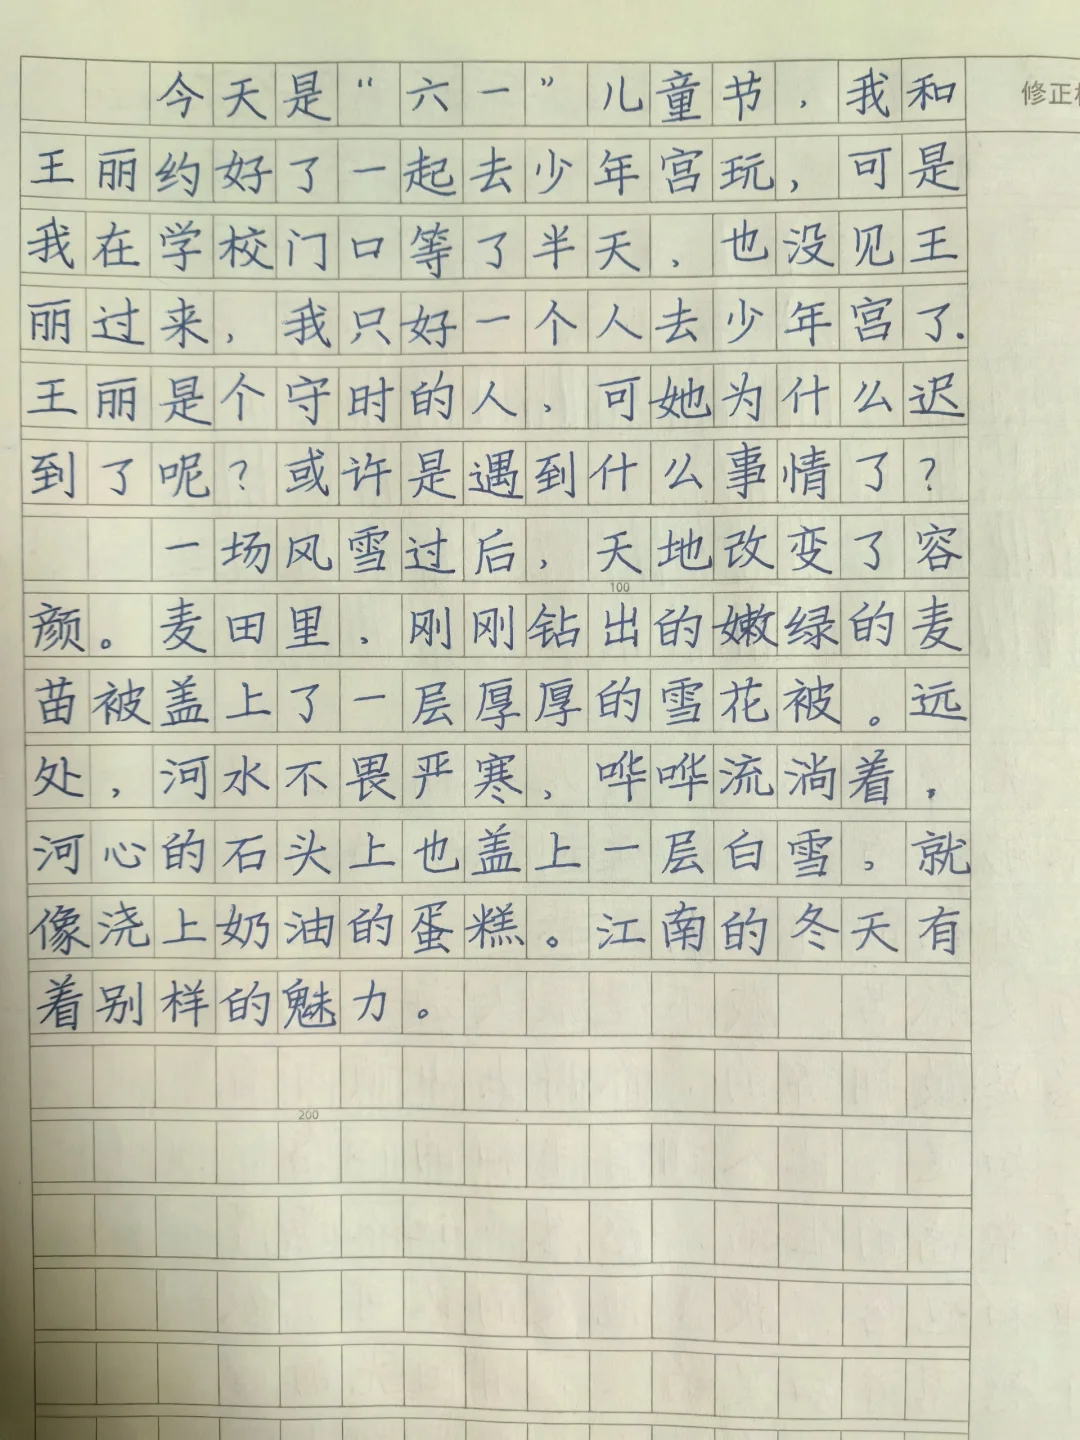 今天是“六一”儿童节，我和
修正
王丽约好了一起去少年宫玩，可是
我在学校门口等了半天，也没见王
丽过来，我只好一个人去少年宫了.
王丽是个守时的人，可她为什么迟
到了呢？或许是遇到什么事情了？
一场风雪过后，天地改变了容
100
颜。麦田里，刚刚钻出的嫩绿的麦
苗被盖上了一层厚厚的雪花被。远
处，河水不畏严寒，哗哗流淌着，
河心的石头上也盖上一层白雪，就
像浇上奶油的蛋糕。江南的冬天有
着别样的魅力。
200